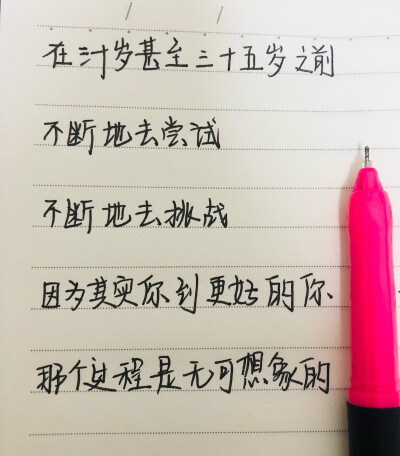 在三十岁甚至三十五岁之前
不断地去尝试
不断地去挑战
因为其实你到更好的你、
那个过程是无可想象的